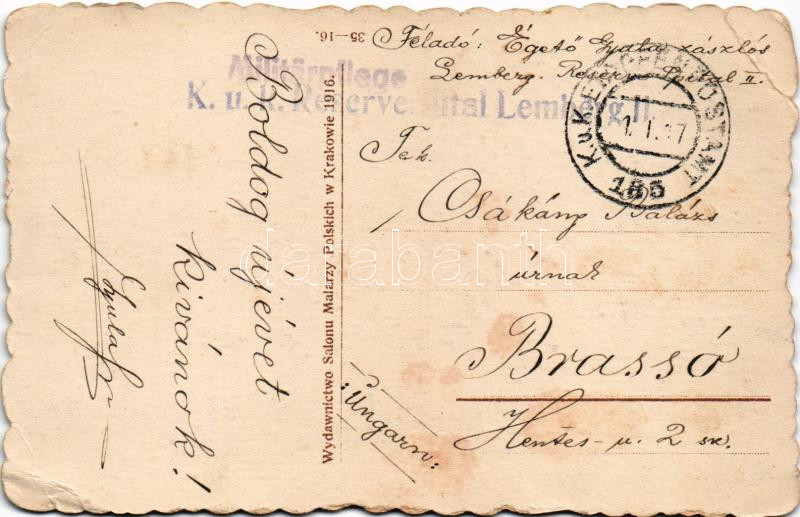 Feladó: Égető Gyula zászlós
Lemberg. Reserve Spital II.
Militärpflege
K. u. K. Reservespital Lemberg II.
K.u.K. ETAPPENPOSTAMT
1.I.17
185
Tek.
Csákány Balázs
úrnak
Brassó
Hentes-u. 2 sz.
:Ungarn:
35–16.
Wydawnictwo Salonu Malarzy Polskich w Krakowie 1916.
Boldog újévet
kívánok!
Gyula
darabanth